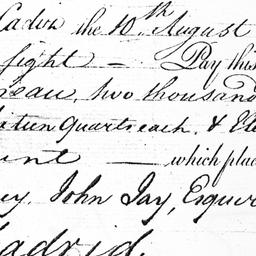 Cadiz the 10th August
sight — Pay this
eau, two thousand
Quarts each, & Ele
unt — which plac
cy. John Jay, Esquir
Madrid.